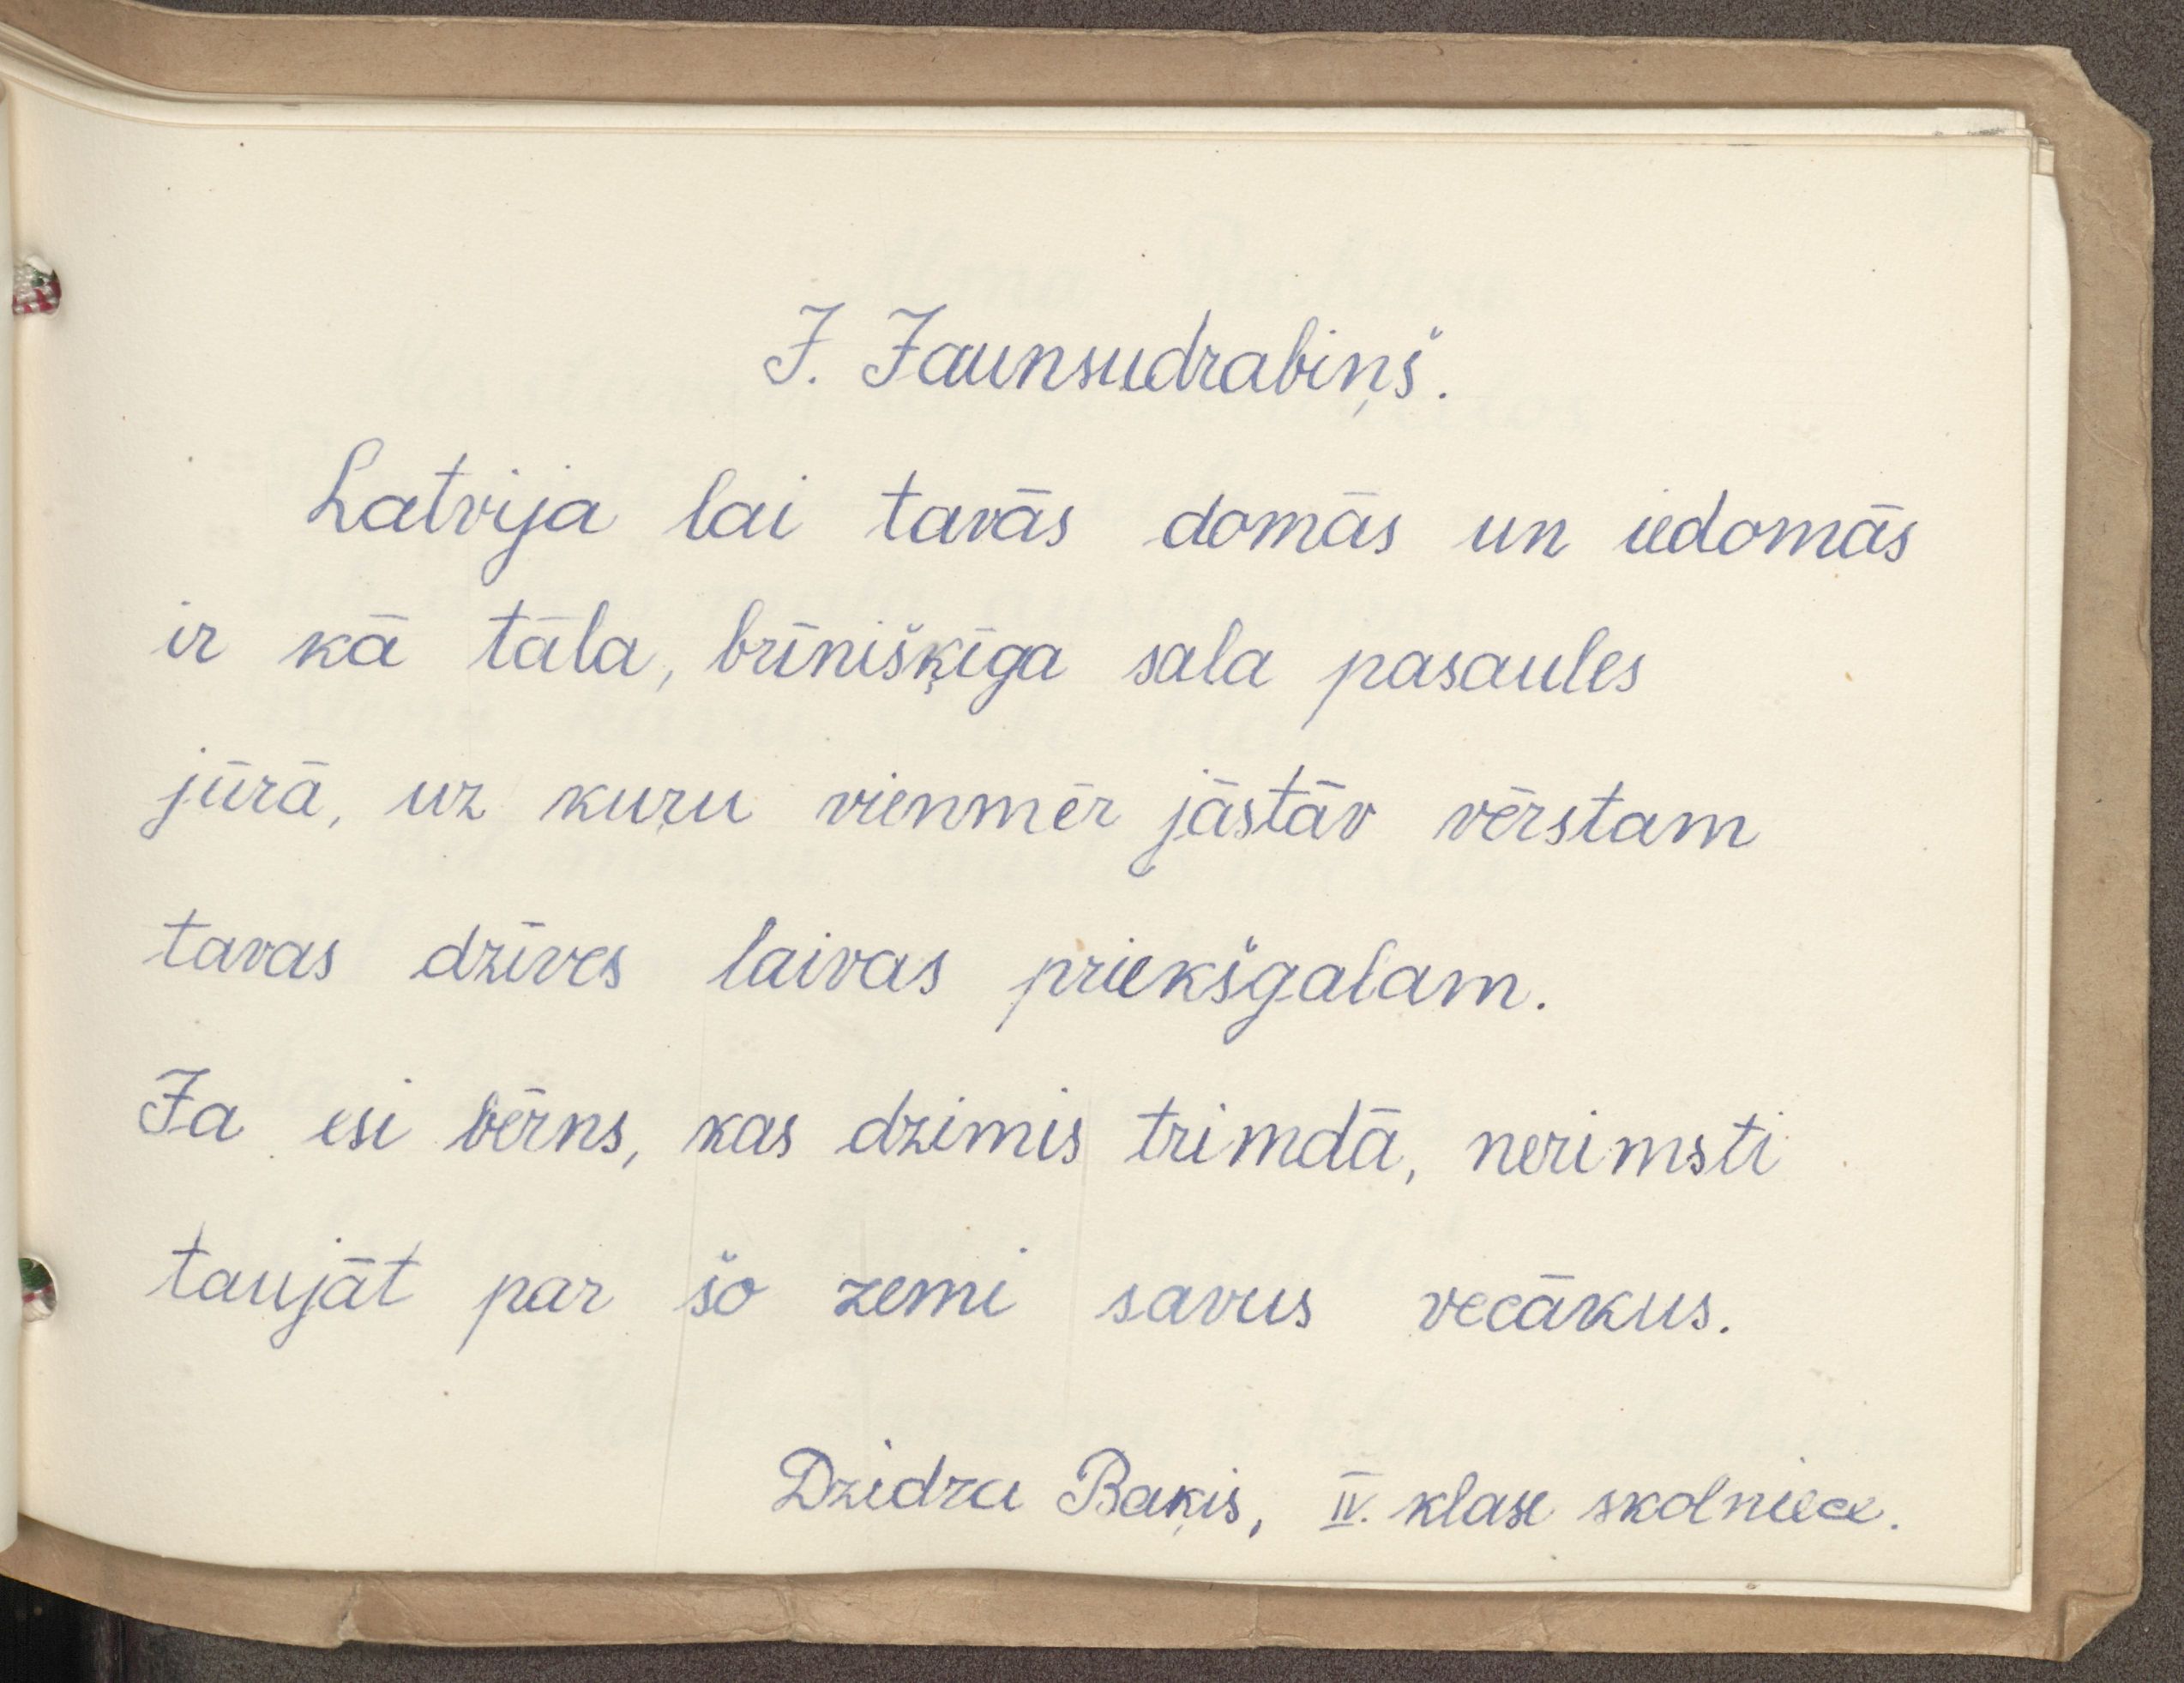 J. Jaunsudrabiņš.
Latvija lai tavās domās un iedomās
ir kā tāla, brīnišķīga sala pasaules
jūrā, uz kuŗu vienmēr jāstāv vērstam
tavas dzīves laivas priekšgalam.
Ja esi bērns, kas dzimis trimdā, nerimsti
taujāt par šo zemi savus vecākus.
Dzidra Baķis, IV. klase skolniece.